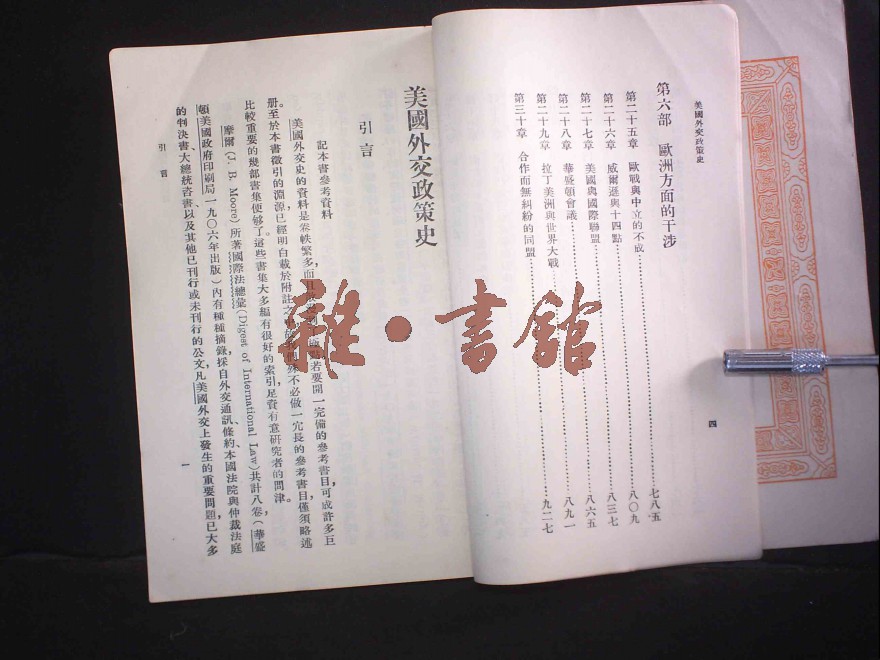 美國外交政策史
第六部 歐洲方面的干涉
第二十五章 歐戰與中立的不成……七八五
第二十六章 威爾遜與十四點……八〇九
第二十七章 美國與國際聯盟……八三七
第二十八章 華盛頓會議……八六五
第二十九章 拉丁美洲與世界大戰……八九一
第三十章 合作而無糾紛的同盟……九二七
四
美國外交政策史
引言
記本書參考資料
美國外交史的資料是卷帙繁多,而且 若要開一完備的參考書目,可成許多巨
册。至於本書徵引的淵源,已經明白載於附註之 不必做一冗長的參考書目,僅須略述
比較重要的幾部書集便够了。這些書集大多編有很好的索引,足資有意研究者的問津。
摩爾(J. B. Moore)所著國際法總彙(Digest of International Law)共計八卷(華盛
頓美國政府印刷局一九〇六年出版)內有種種摘錄,採自外交通訊、條約、本國法院與仲裁法庭
的判決書、大總統咨書、以及其他已刊行或未刊行的公文,凡美國外交上發生的重要問題,已大多
引言
一
雜·書館